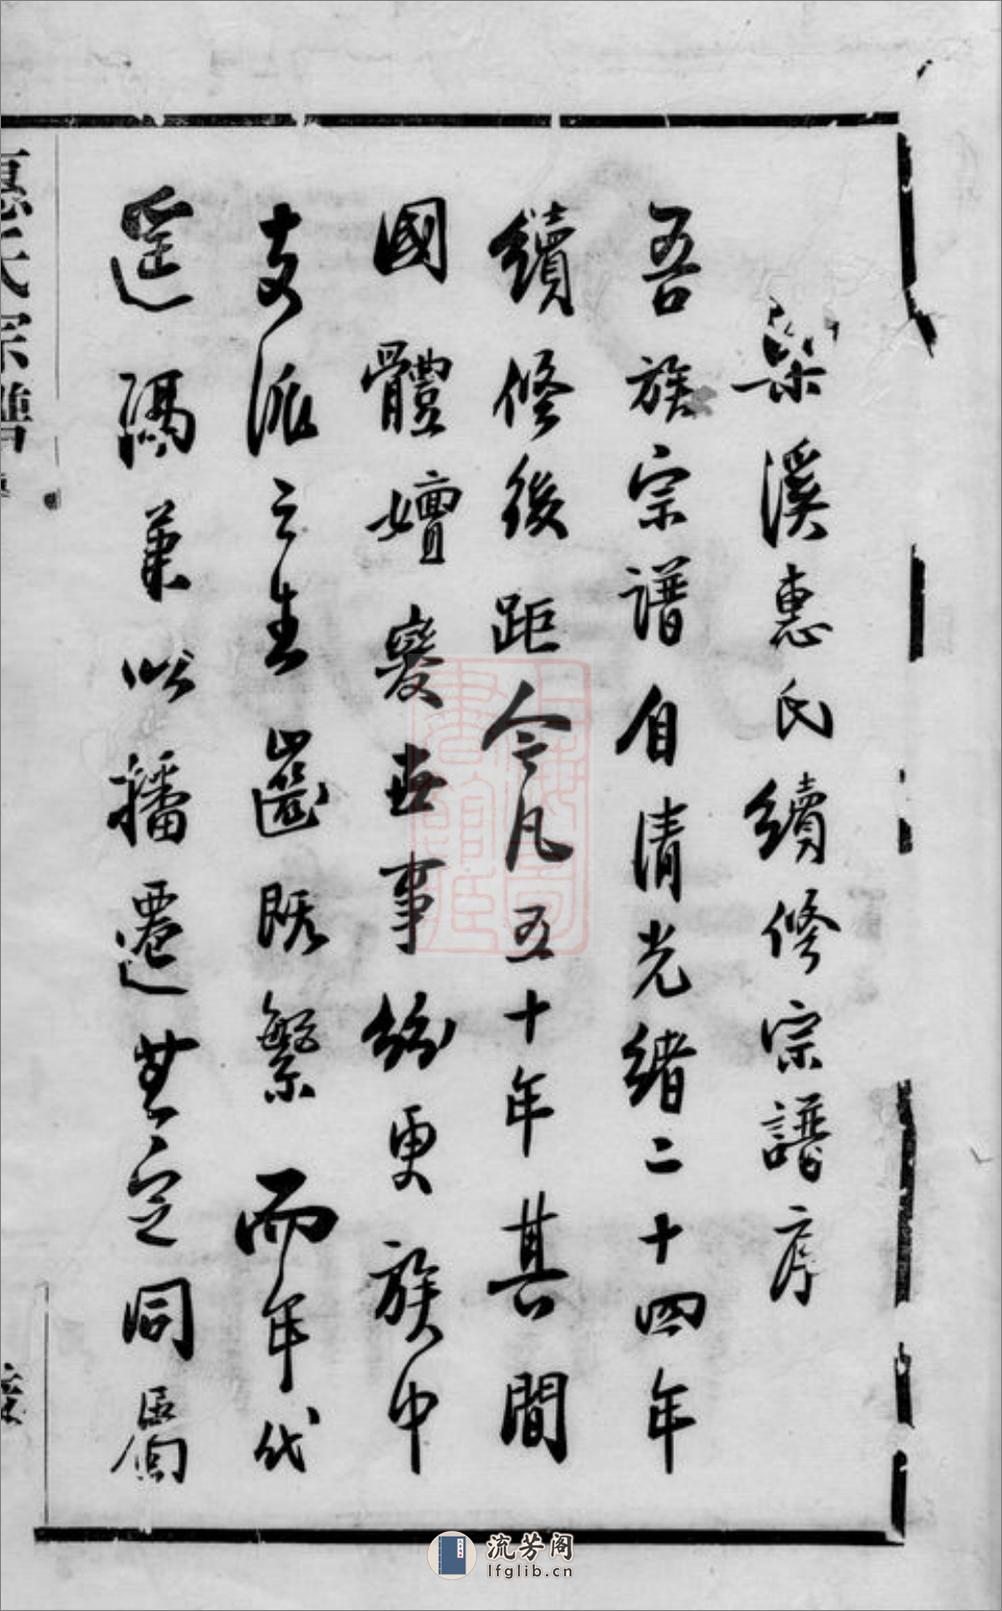 梁溪惠氏續修宗譜序
吾族宗譜自清光緒二十四年
續修後距今凡五十年其間
國體嬗變世事紛更族中
支派之生齒既繁而年代
遥隔兼以播遷無定同屬
惠氏宗譜
流芳阁
lfglib.cn